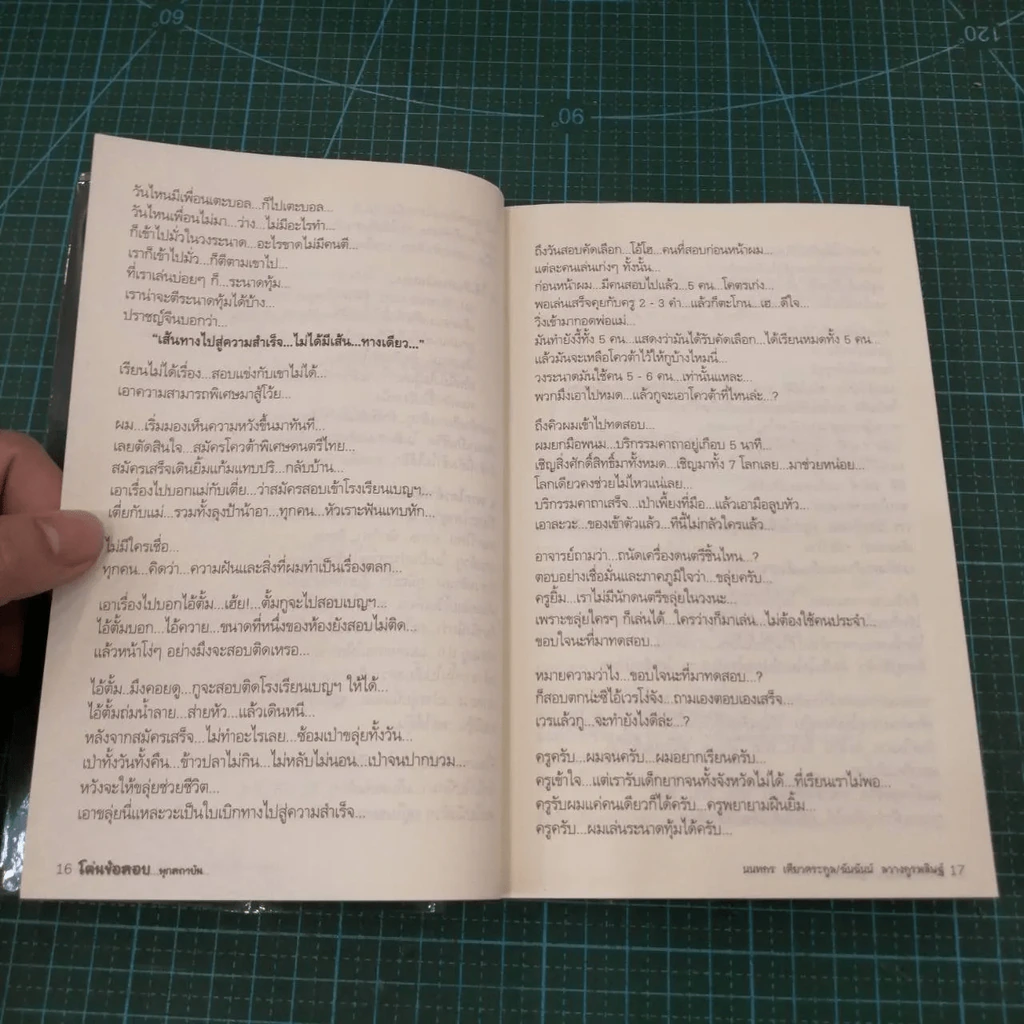 วันไหนมีเพื่อนเตะบอล...ก็ไปเตะบอล...
วันไหนเพื่อนไม่มา...ว่าง...ไม่มีอะไรทำ...
ก็เข้าไปมั่วในวงระนาด...อะไรขาดไม่มีคนตี...
เราก็เข้าไปมั่ว...ก็ตีตามเขาไป...
ที่เราเล่นบ่อยๆ ก็...ระนาดทุ้ม...
เราน่าจะตีระนาดทุ้มได้บ้าง...
ปราชญ์จีนบอกว่า...
"เส้นทางไปสู่ความสำเร็จ...ไม่ได้มีเส้น...ทางเดียว..."
เรียนไม่ได้เรื่อง...สอบแข่งกับเขาไม่ได้...
เอาความสามารถพิเศษมาสู้โว้ย...
ผม...เริ่มมองเห็นความหวังขึ้นมาทันที...
เลยตัดสินใจ...สมัครโควต้าพิเศษดนตรีไทย...
สมัครเสร็จเดินยิ้มแก้มแทบปริ...กลับบ้าน...
เอาเรื่องไปบอกแม่กับเตี่ย...ว่าสมัครสอบเข้าโรงเรียนเบญฯ...
เตี่ยกับแม่...รวมทั้งลุงป้าน้าอา...ทุกคน...หัวเราะฟันแทบหัก...
ไม่มีใครเชื่อ...
ทุกคน...คิดว่า...ความฝันและสิ่งที่ผมทำเป็นเรื่องตลก...
เอาเรื่องไปบอกไอ้ตั้ม...เฮ้ย!...ตั้มกูจะไปสอบเบญฯ...
ไอ้ตั้มบอก...ไอ้ควาย...ขนาดที่หนึ่งของห้องยังสอบไม่ติด...
แล้วหน้าโง่ๆ อย่างมึงจะสอบติดเหรอ...
ไอ้ตั้ม..มึงคอยดู...กูจะสอบติดโรงเรียนเบญฯ ให้ได้...
ไอ้ตั้มถ่มน้ำลาย...ส่ายหัว...แล้วเดินหนี...
หลังจากสมัครเสร็จ...ไม่ทำอะไรเลย...ซ้อมเป่าขลุ่ยทั้งวัน...
เป่าทั้งวันทั้งคืน...ข้าวปลาไม่กิน...ไม่หลับไม่นอน...เป่าจนปากบวม...
หวังจะให้ขลุ่ยช่วยชีวิต...
เอาขลุ่ยนี่แหละวะเป็นใบเบิกทางไปสู่ความสำเร็จ...
16 โค่นข้อสอบ...ทุกสถาบัน...
ถึงวันสอบคัดเลือก...โอ้โฮ...คนที่สอบก่อนหน้าผม...
แต่ละคนเล่นเก่งๆ ทั้งนั้น...
ก่อนหน้าผม...มีคนสอบไปแล้ว...5 คน...โคตรเก่ง...
พอเล่นเสร็จคุยกับครู 2 - 3 คำ...แล้วก็ตะโกน...เฮ...ดีใจ...
วิ่งเข้ามากอดพ่อแม่...
มันทำยังงี้ทั้ง 5 คน...แสดงว่ามันได้รับคัดเลือก...ได้เรียนหมดทั้ง 5 คน...
แล้วมันจะเหลือโควต้าไว้ให้กูบ้างไหมนี่...
วงระนาดมันใช้คน 5 - 6 คน...เท่านั้นแหละ...
พวกมึงเอาไปหมด...แล้วกูจะเอาโควต้าที่ไหนล่ะ...?
ถึงคิวผมเข้าไปทดสอบ...
ผมยกมือพนม...บริกรรมคาถาอยู่เกือบ 5 นาที...
เชิญสิ่งศักดิ์สิทธิ์มาทั้งหมด...เชิญมาทั้ง 7 โลกเลย...มาช่วยหน่อย...
โลกเดียวคงช่วยไม่ไหวแน่เลย...
บริกรรมคาถาเสร็จ...เป่าเพี้ยงที่มือ...แล้วเอามือลูบหัว...
เอาละวะ...ของเข้าตัวแล้ว...ทีนี้ไม่กลัวใครแล้ว...
อาจารย์ถามว่า...ถนัดเครื่องดนตรีชิ้นไหน...?
ตอบอย่างเชื่อมั่นและภาคภูมิใจว่า...ขลุ่ยครับ...
ครูยิ้ม...เราไม่มีนักดนตรีขลุ่ยในวงนะ...
เพราะขลุ่ยใครๆ ก็เล่นได้...ใครว่างก็มาเล่น...ไม่ต้องใช้คนประจำ...
ขอบใจนะที่มาทดสอบ...
หมายความว่าไง...ขอบใจนะที่มาทดสอบ...?
ก็สอบตกน่ะซิไอ้เวรโง่จัง...ถามเองตอบเองเสร็จ...
เวรแล้วกู...จะทำยังไงดีล่ะ...?
ครูครับ...ผมจนครับ...ผมอยากเรียนครับ...
ครูเข้าใจ...แต่เรารับเด็กยากจนทั้งจังหวัดไม่ได้...ที่เรียนเราไม่พอ...
ครูรับผมแค่คนเดียวก็ได้ครับ...ครูพยายามฝืนยิ้ม...
ครูครับ...ผมเล่นระนาดทุ้มได้ครับ...
17